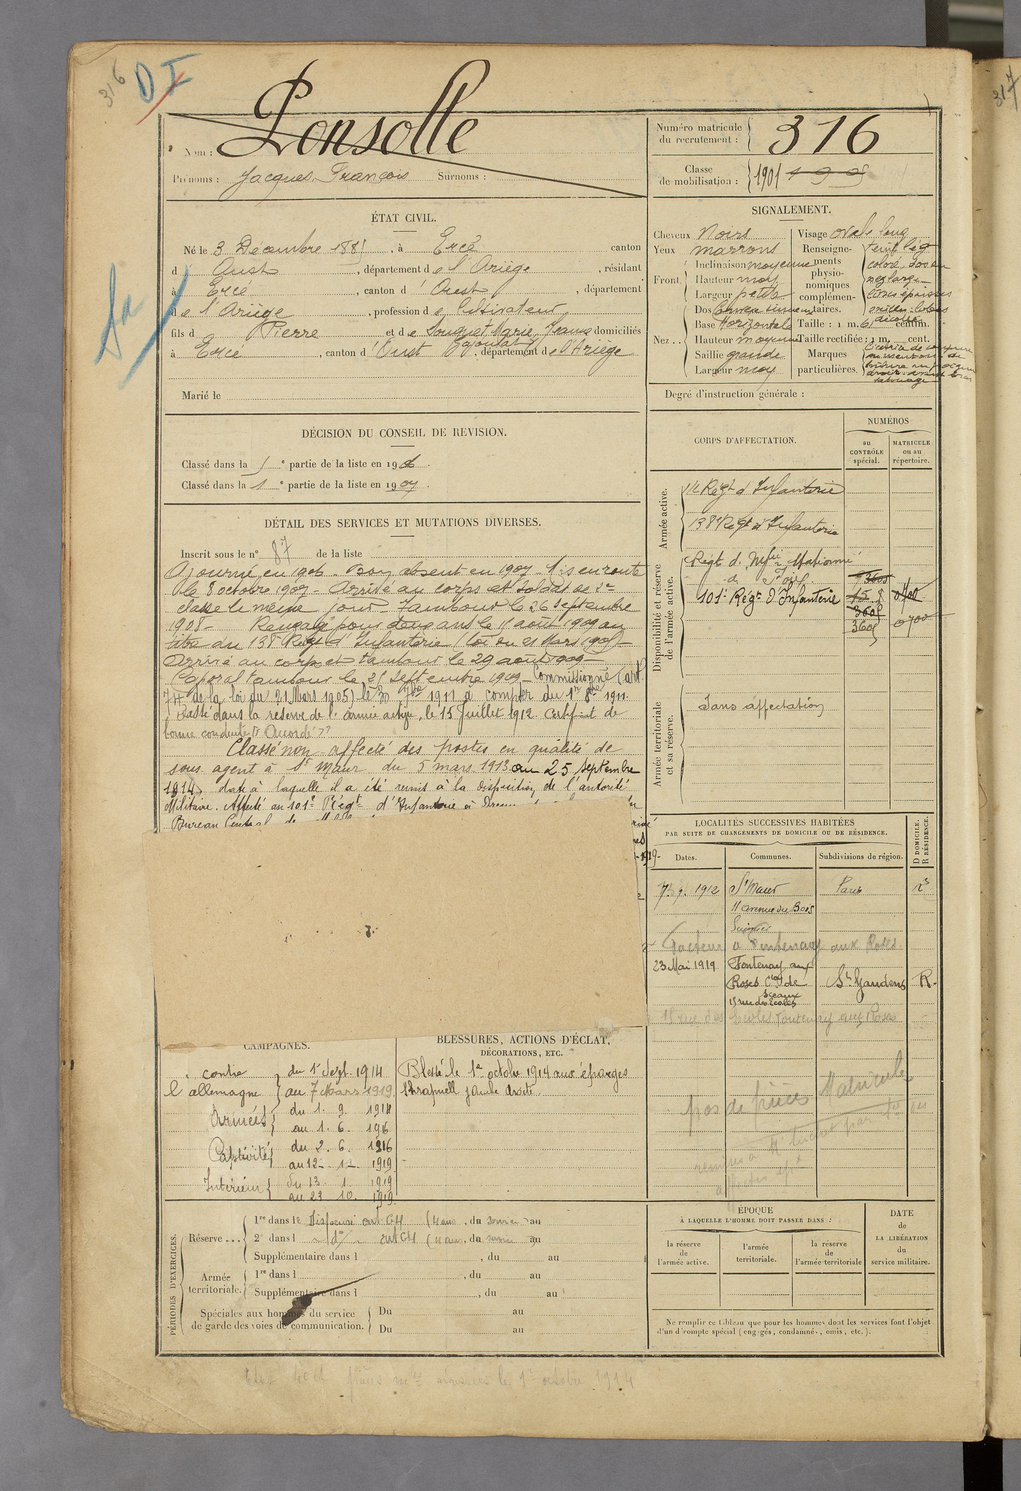 316
D I
Nom : Ponsolle
Prénoms : Jacques François Surnoms :
Numéro matricule du recrutement : 316
Classe de mobilisation : 1901
ÉTAT CIVIL.
Né le 3 Décembre 1885, à Ercé canton
d Oust, département de l'Ariège, résidant
à Ercé, canton d'Oust, département
de l'Ariège, profession de cultivateur,
fils de Pierre et de Souquet Marie, Jeanne domiciliés
à Ercé, canton d'Oust, département de l'Ariège
Marié le
SIGNALEMENT.
Cheveux Noirs
Yeux marrons
Front Inclinaison moyenne
Hauteur moy
Largeur petite
Nez Dos
Base horizontale
Hauteur moyenne
Saillie grande
Largeur moy
Visage ovale long
Renseignements physionomiques complémentaires.
Taille : 1 m. 61 centim.
Taille rectifiée : 1 m. cent.
Marques particulières.
Degré d'instruction générale :
DÉCISION DU CONSEIL DE REVISION.
Classé dans la 5e partie de la liste en 1906.
Classé dans la 1e partie de la liste en 1907.
DÉTAIL DES SERVICES ET MUTATIONS DIVERSES.
Inscrit sous le n° 87 de la liste
Ajourné en 1906. Bon absent en 1907. Mis en route
le 8 octobre 1907. Arrivé au corps et soldat de 2e
classe le même jour. Tambour le 26 septembre
1908. Rengagé pour deux ans le 11 août 1909 au
titre du 138 Régt d'Infanterie (loi du 21 Mars 1905)
Arrivé au corps et tambour le 29 août 1909
Caporal tambour le 21 septembre 1909. Commissionné (art.
74 de la loi du 21 Mars 1905) le 30 7bre 1911 à compter du 1er 8bre 1911.
Passé dans la réserve de l'armée active, le 15 Juillet 1912. Certificat de
bonne conduite "Accordé"
Classé non affecté des postes en qualité de
sous agent à St Maur du 5 mars 1913 au 25 septembre
1914, date à laquelle il a été remis à la disposition de l'autorité
Militaire. Affecté au 101e Régt d'Infanterie à
Bureau Central de
CORPS D'AFFECTATION.
NUMÉROS
au CONTRÔLE spécial.
MATRICULE ou au répertoire.
Armée active.
14 Régt d'Infanterie
138e Régt d'Infanterie
Disponibilité et réserve de l'armée active.
Régt d'Infie stationné
101e Régt d'Infanterie
Armée territoriale et sa réserve.
Sans affectation
LOCALITÉS SUCCESSIVES HABITÉES
PAR SUITE DE CHANGEMENTS DE DOMICILE OU DE RÉSIDENCE.
Dates.
Communes.
Subdivisions de région.
D DOMICILE. R RÉSIDENCE.
1912 St Maur Paris R
11 avenue du Bois
Facteur à Fontenay aux Roses
23 Mai 1919 Fontenay aux Roses Con de Sceaux St Gaudens R.
15 rue des écoles
15 rue des Ecoles Fontenay aux Roses
pas de pièces Matricule
CAMPAGNES.
contre l'allemagne du 1er Sept. 1914
au 7 Mars 1919
Armées du 1. 9. 1914
au 1. 6. 1916
Captivité du 2. 6. 1916
au 12. 1. 1919
Intérieur du 13 1. 1919
au 23 10. 1919
BLESSURES, ACTIONS D'ÉCLAT, DÉCORATIONS, ETC.
Blessé le 1er octobre 1914 aux éparges
Shrapnell jambe droite.
PÉRIODES D'EXERCICES.
Réserve ... 1re dans le Dispensé art. 64 (4 ans, du au
2e dans l do art 64 (4 ans, du au
Supplémentaire dans l , du au
Armée territoriale. 1re dans l , du au
Supplémentaire dans l , du au
Spéciales aux hommes du service de garde des voies de communication. Du au
Du au
ÉPOQUE
À LAQUELLE L'HOMME DOIT PASSER DANS :
la réserve de l'armée active.
l'armée territoriale.
la réserve de l'armée territoriale
DATE de LA LIBÉRATION du service militaire.
Ne remplir ce tableau que pour les hommes dont les services font l'objet
d'un décompte spécial (engagés, condamnés, omis, etc.).
317